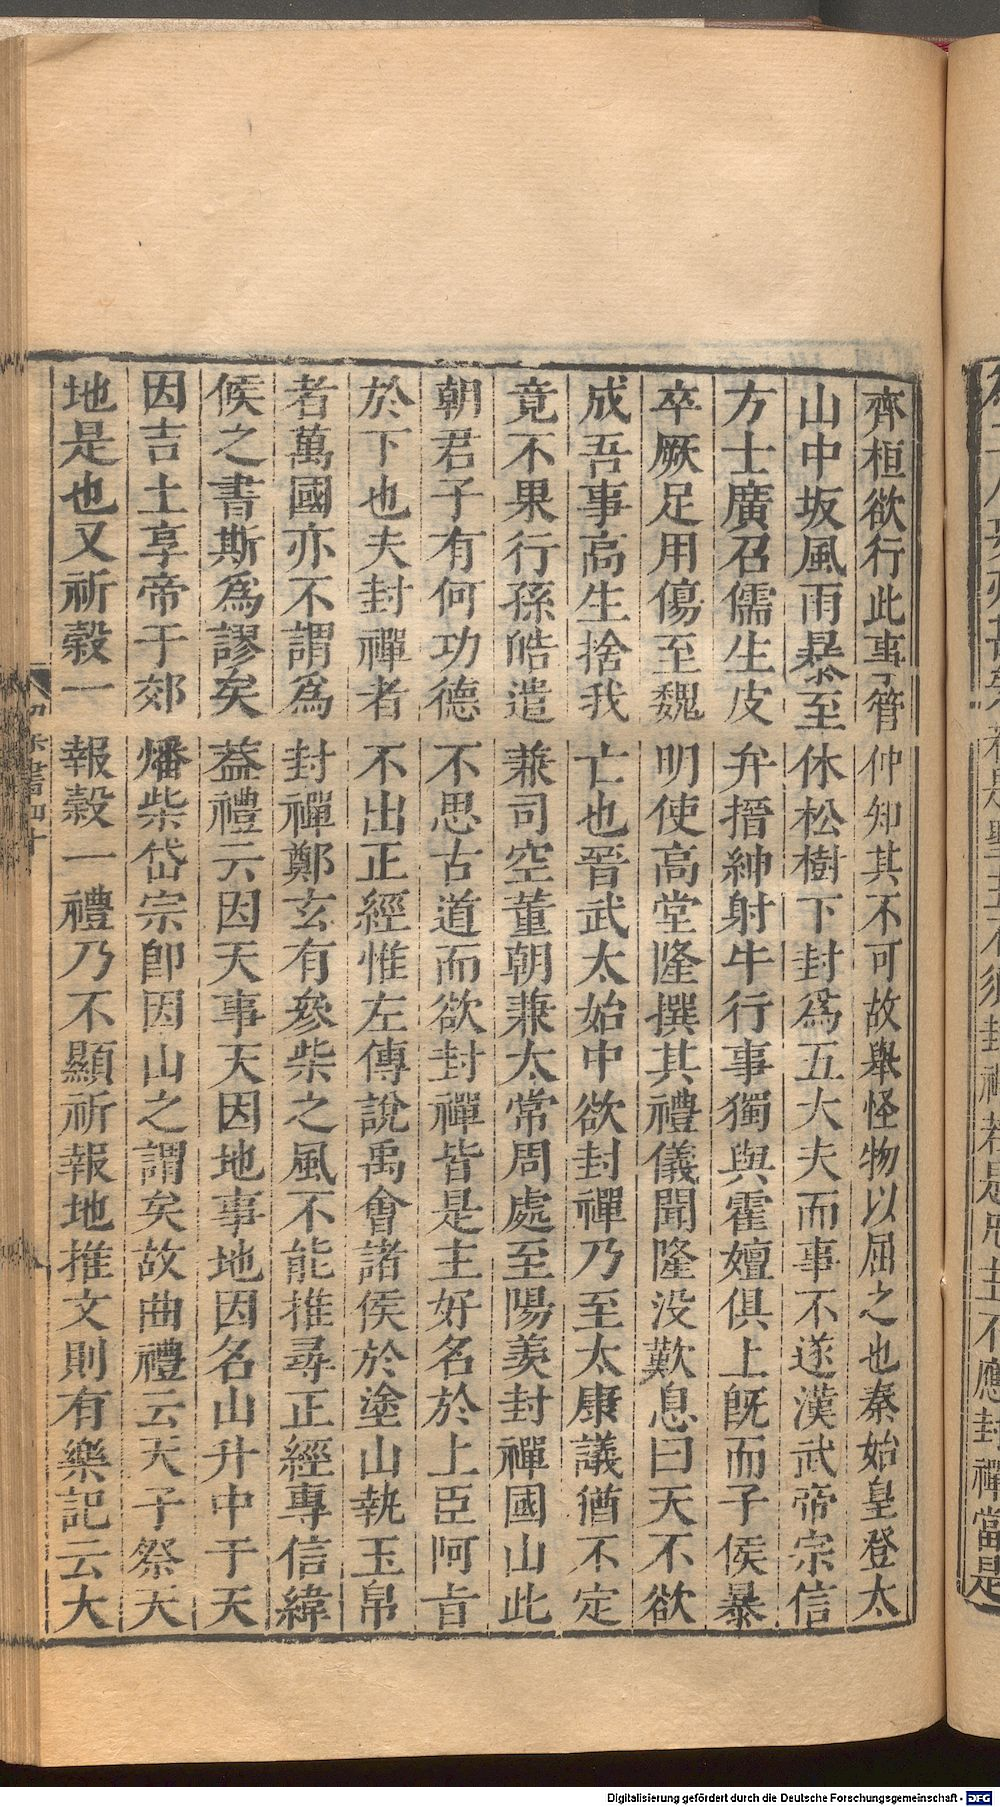 齊桓欲行此事管仲知其不可故舉怪物以屈之也秦始皇登太
山中坂風雨暴至休松樹下封為五大夫而事不遂漢武帝宗信
方士廣召儒生皮弁搢紳射牛行事獨與霍嬗俱上旣而子侯暴
卒厥足用傷至魏明使高堂隆撰其禮儀聞隆没歎息曰天不欲
成吾事高生捨我亡也晉武太始中欲封禪乃至太康議猶不定
竟不果行孫皓遣兼司空董朝兼太常周處至陽羨封禪國山此
朝君子有何功德不思古道而欲封禪皆是主好名於上臣阿旨
於下也夫封禪者不出正經惟左傳說禹會諸侯於塗山執玉帛
者萬國亦不謂為封禪鄭玄有參柴之風不能推尋正經專信緯
候之書斯為謬矣蓋禮云因天事天因地事地因名山升中于天
因吉土享帝于郊燔柴岱宗卽因山之謂矣故曲禮云天子祭天
地是也又祈穀一報穀一禮乃不顯祈報地推文則有樂記云大
封禪若是
不應封禪當是
Digitalisierung gefördert durch die Deutsche Forschungsgemeinschaft - DFG